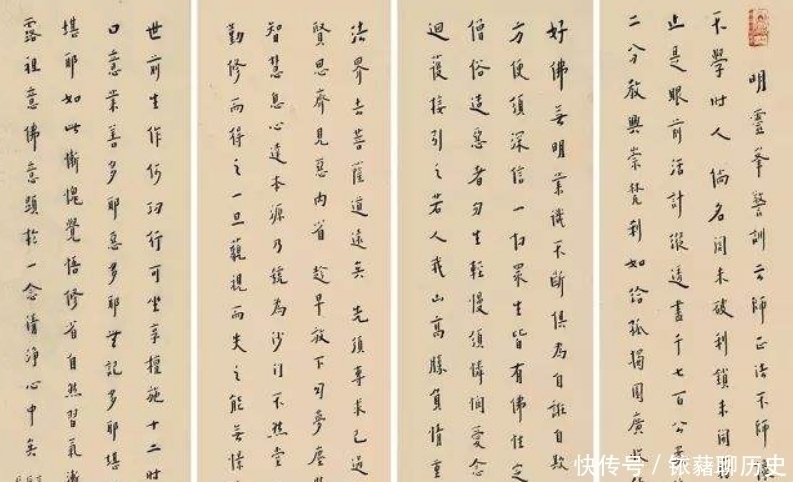 明靈峯警訓云師正法不師
不學时人徇名闻未破利鎖未開
止是眼前活計縱透盡千七百公
二分教興崇梵刹如給孤獨園廣
好佛無明業識不斷俱為自誑自欺
方便須深信一切眾生皆有佛性定
僧俗造惡者勿生輕慢須憐憫愛念
迴護接引之若人我山高勝負情重
法界去菩薩道遠矣先須專求己過
賢思齊見惡內省趁早放下勿夢塵
智慧息心達本源乃號為沙门不然
勤修而得之一旦藐視而失之能無
世前生作何功行可坐享檀施十二时
口意業善多耶惡多耶無記多耶堪
堪耶如此慚愧覺悟修省自然習氣漸
露祖意佛意顯於一念清淨心中矣
快传号 / 铱藉聊历史